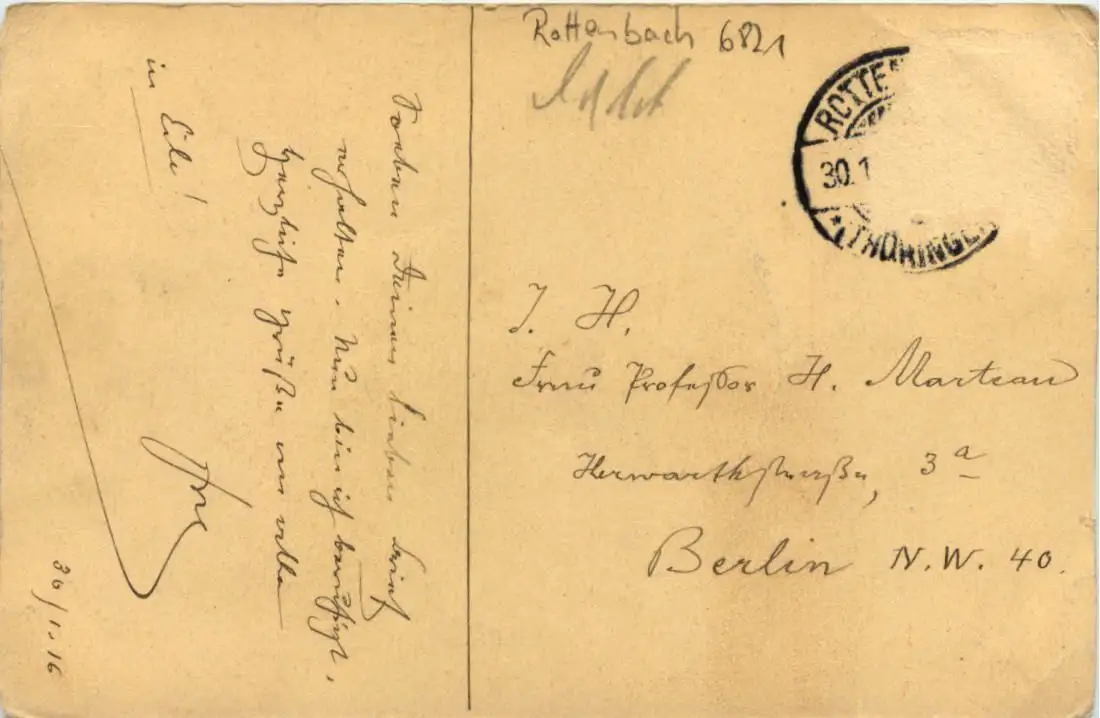 Rottenbach 6821
ROTTE
30.1
* THÜRINGEN
I. H.
Frau Professor H. Marteau
Herwarthstraße, 3a
Berlin N.W. 40.
Soeben Deinen lieben Brief
erhalten. Nun bin ich beruhigt.
Herzliche Grüße uns allen
in Eile!
30/1.16